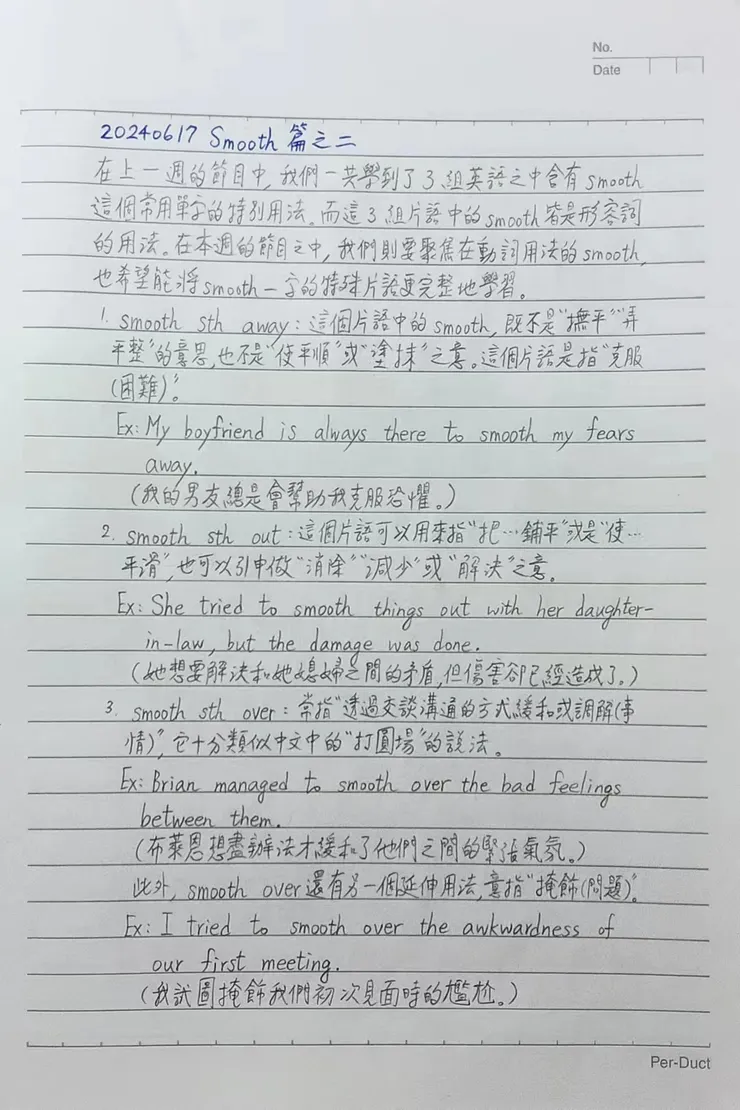 No.
Date
20240617 Smooth 篇之二
在上一週的節目中, 我們一共學到了3組英語之中含有smooth
這個常用單字的特別用法。而這3組片語中的smooth皆是形容詞
的用法。在本週的節目之中, 我們則要聚焦在動詞用法的smooth,
也希望能將smooth一字的特殊片語更完整地學習。
1. smooth sth away: 這個片語中的smooth, 既不是"撫平""弄
平整"的意思, 也不是"使平順"或"塗抹"之意。這個片語是指"克服
(困難)"。
Ex: My boyfriend is always there to smooth my fears
away.
(我的男友總是會幫助我克服恐懼。)
2. smooth sth out: 這個片語可以用來指"把…鋪平"或是"使…
平滑", 也可以引申做"消除""減少"或"解決"之意。
Ex: She tried to smooth things out with her daughter-
in-law, but the damage was done.
(她想要解決和她媳婦之間的矛盾, 但傷害卻已經造成了。)
3. smooth sth over: 常指"透過交談溝通的方式緩和或調解(事
情)", 它十分類似中文中的"打圓場"的說法。
Ex: Brian managed to smooth over the bad feelings
between them.
(布萊恩想盡辦法才緩和了他們之間的緊張氣氛。)
此外, smooth over還有另一個延伸用法, 意指"掩飾(問題)"。
Ex: I tried to smooth over the awkwardness of
our first meeting.
(我試圖掩飾我們初次見面時的尷尬。)
Per-Duct